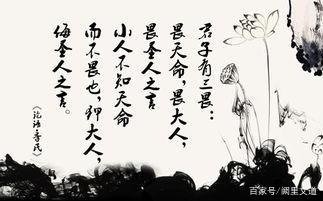 君子有三畏：
畏天命，畏大人，
畏圣人之言
小人不知天命
而不畏也，狎大人，
侮圣人之言。
《论语·季氏》
百家号/阙里文道